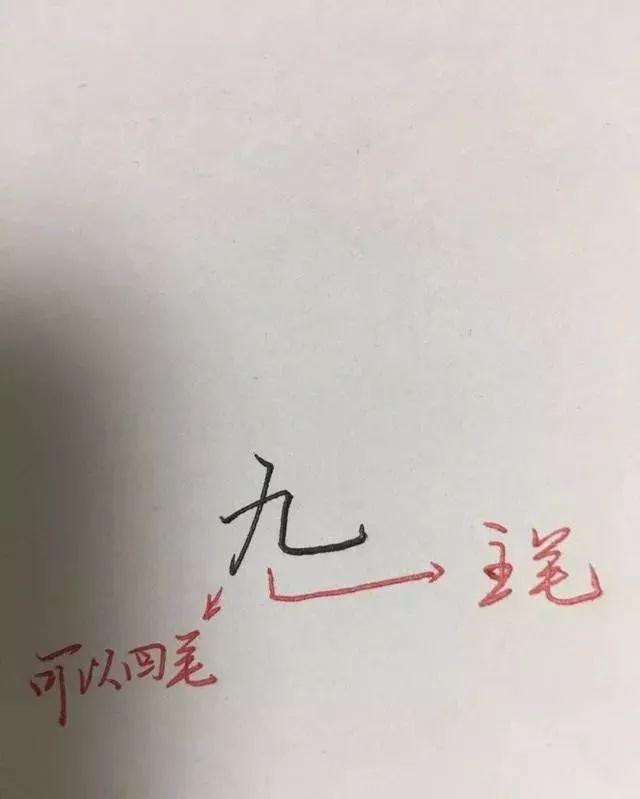 九
主笔
可以回笔